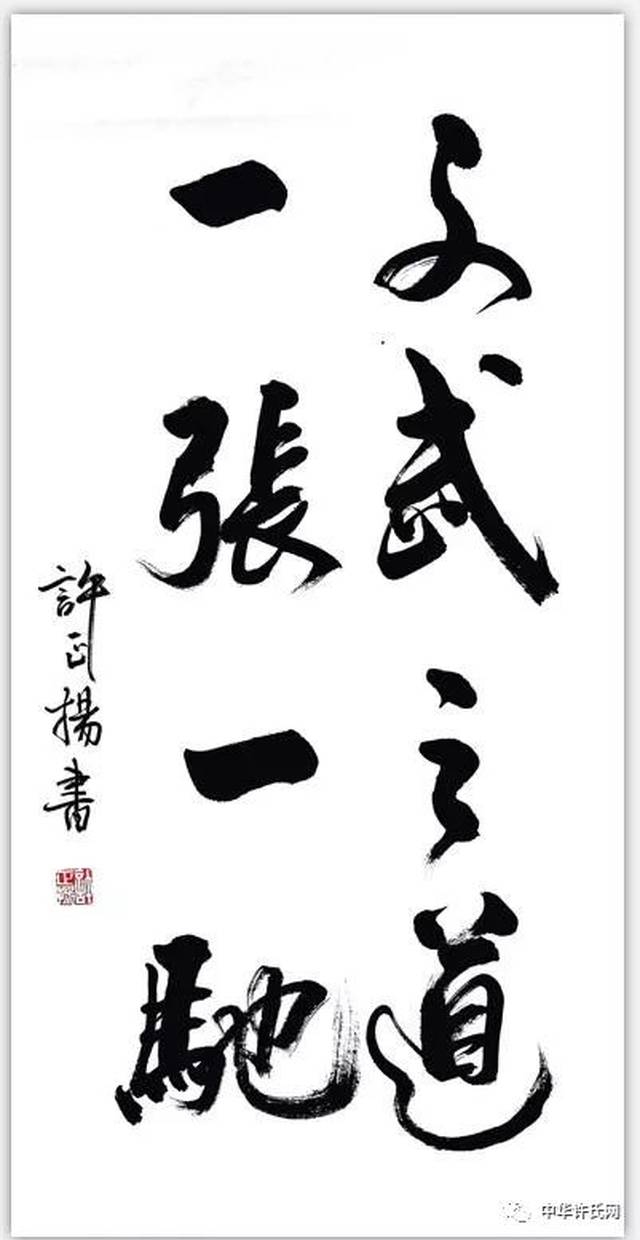 文武之道
一張一馳
許正揚書
中华许氏网